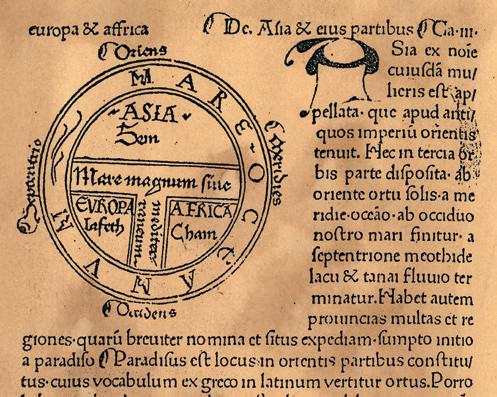 europa & affrica
De. Asia & eius partibus Ca·iii·
Oriens
MARE OCEANUM
Septentrio
Meridies
·ASIA·
Sem
Mare magnum siue
EVROPA
Iafeth
mediter
raneum
AFRICA
Cham
Occidens
ASia ex noīe
cuiusdā mu/
lieris est ap/
pellata· que apud anti/
quos imperiū orientis
tenuit. Hec in tercia or
bis parte disposita· ab
oriente ortu solis·a me
ridie·oceāo·ab occiduo
nostro mari finitur·a
septentrione meothide
lacu & tanai fluuio ter
minatur. Habet autem
prouincias multas et re
giones·quarū breuiter nomina et situs expediam·sumpto initio
a paradiso Paradisus est locus in orientis partibus constitu/
tus·cuius vocabulum ex greco in latinum vertitur ortus. Porro